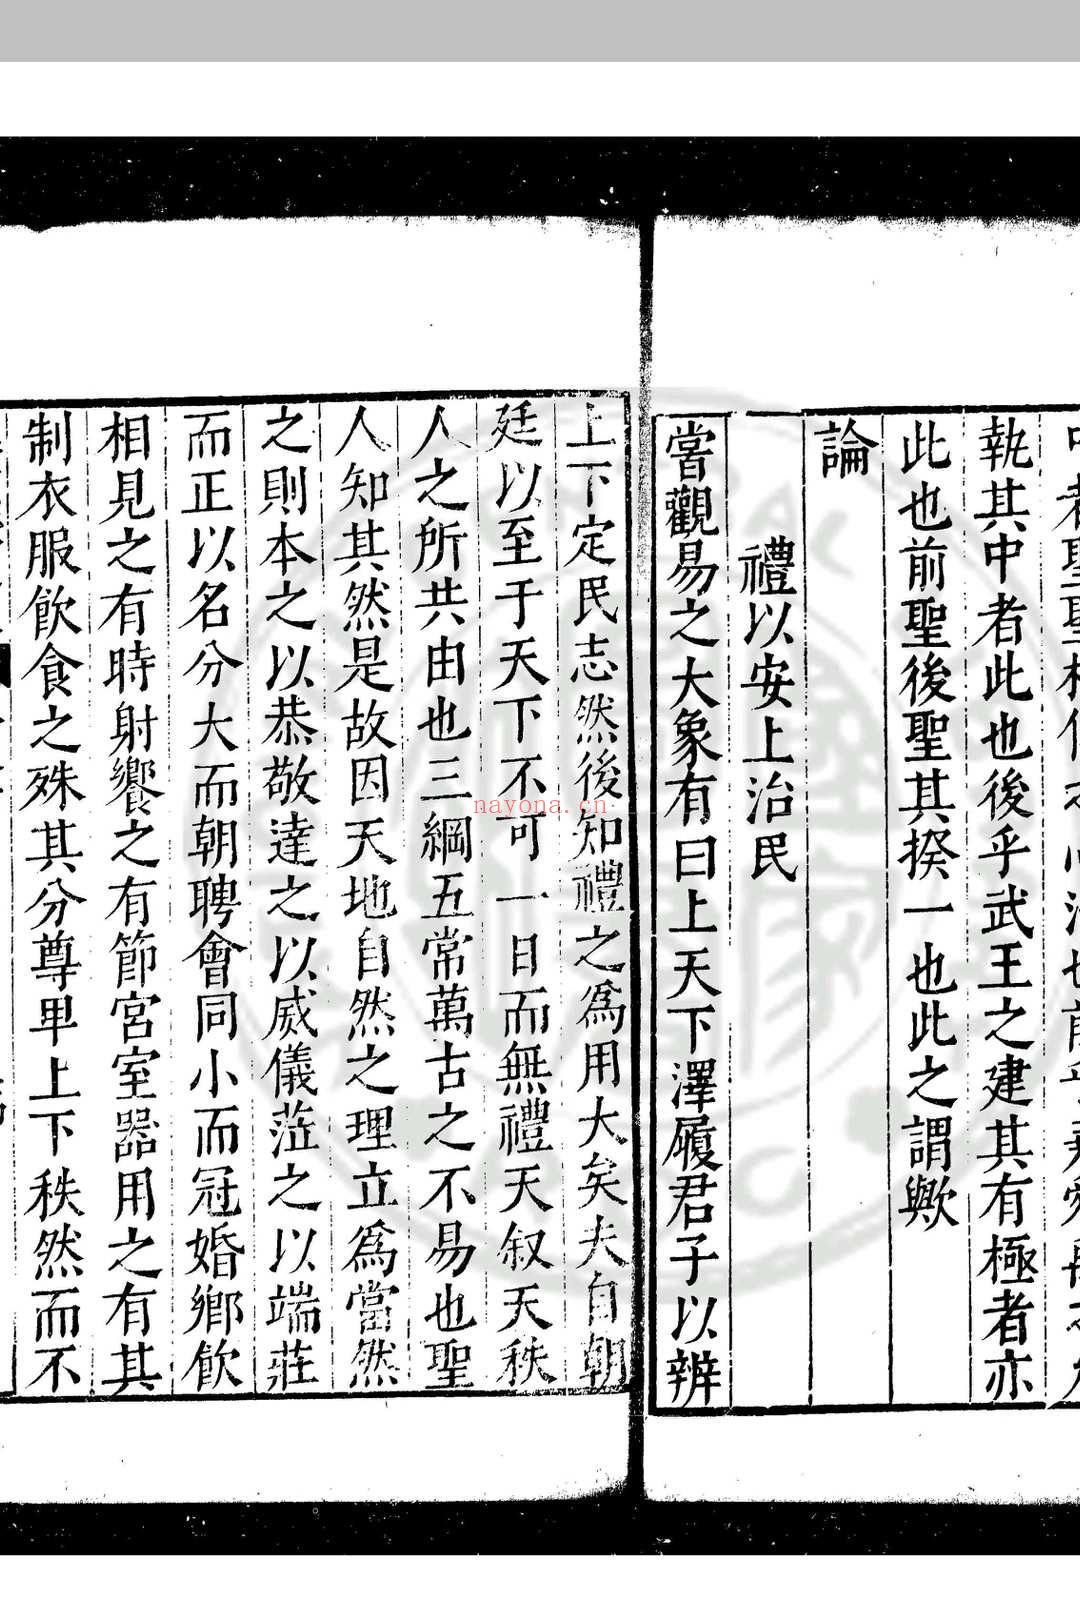 執其中者此也後乎武王之建其有極者亦
此也前聖後聖其揆一也此之謂歟
論
禮以安上治民
嘗觀易之大象有曰上天下澤履君子以辨
上下定民志然後知禮之爲用大矣夫自朝
廷以至于天下不可一日而無禮天叙天秩
人之所共由也三綱五常萬古之不易也聖
人知其然是故因天地自然之理立爲當然
之則本之以恭敬達之以威儀蒞之以端莊
而正以名分大而朝聘會同小而冠婚鄉飲
相見之有時射饗之有節宮室器用之有其
制衣服飲食之殊其分尊卑上下秩然而不
nayona.cn